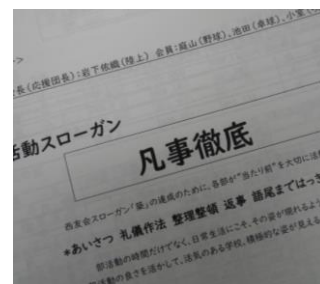 長(応援団長):岩下依織(陸上) 会員:庭山(野球)、池田(卓球)、小室(
活動スローガン
凡事徹底
西友会スローガン「築」の達成のために、各部が“当たり前”を大切に活動
*あいさつ 礼儀作法 整理整頓 返事 語尾まではっき
部活動の時間だけでなく、日常生活にこそ、その姿が現れるよう
活動の良さを活かして、活気のある学校、積極的な姿が見える